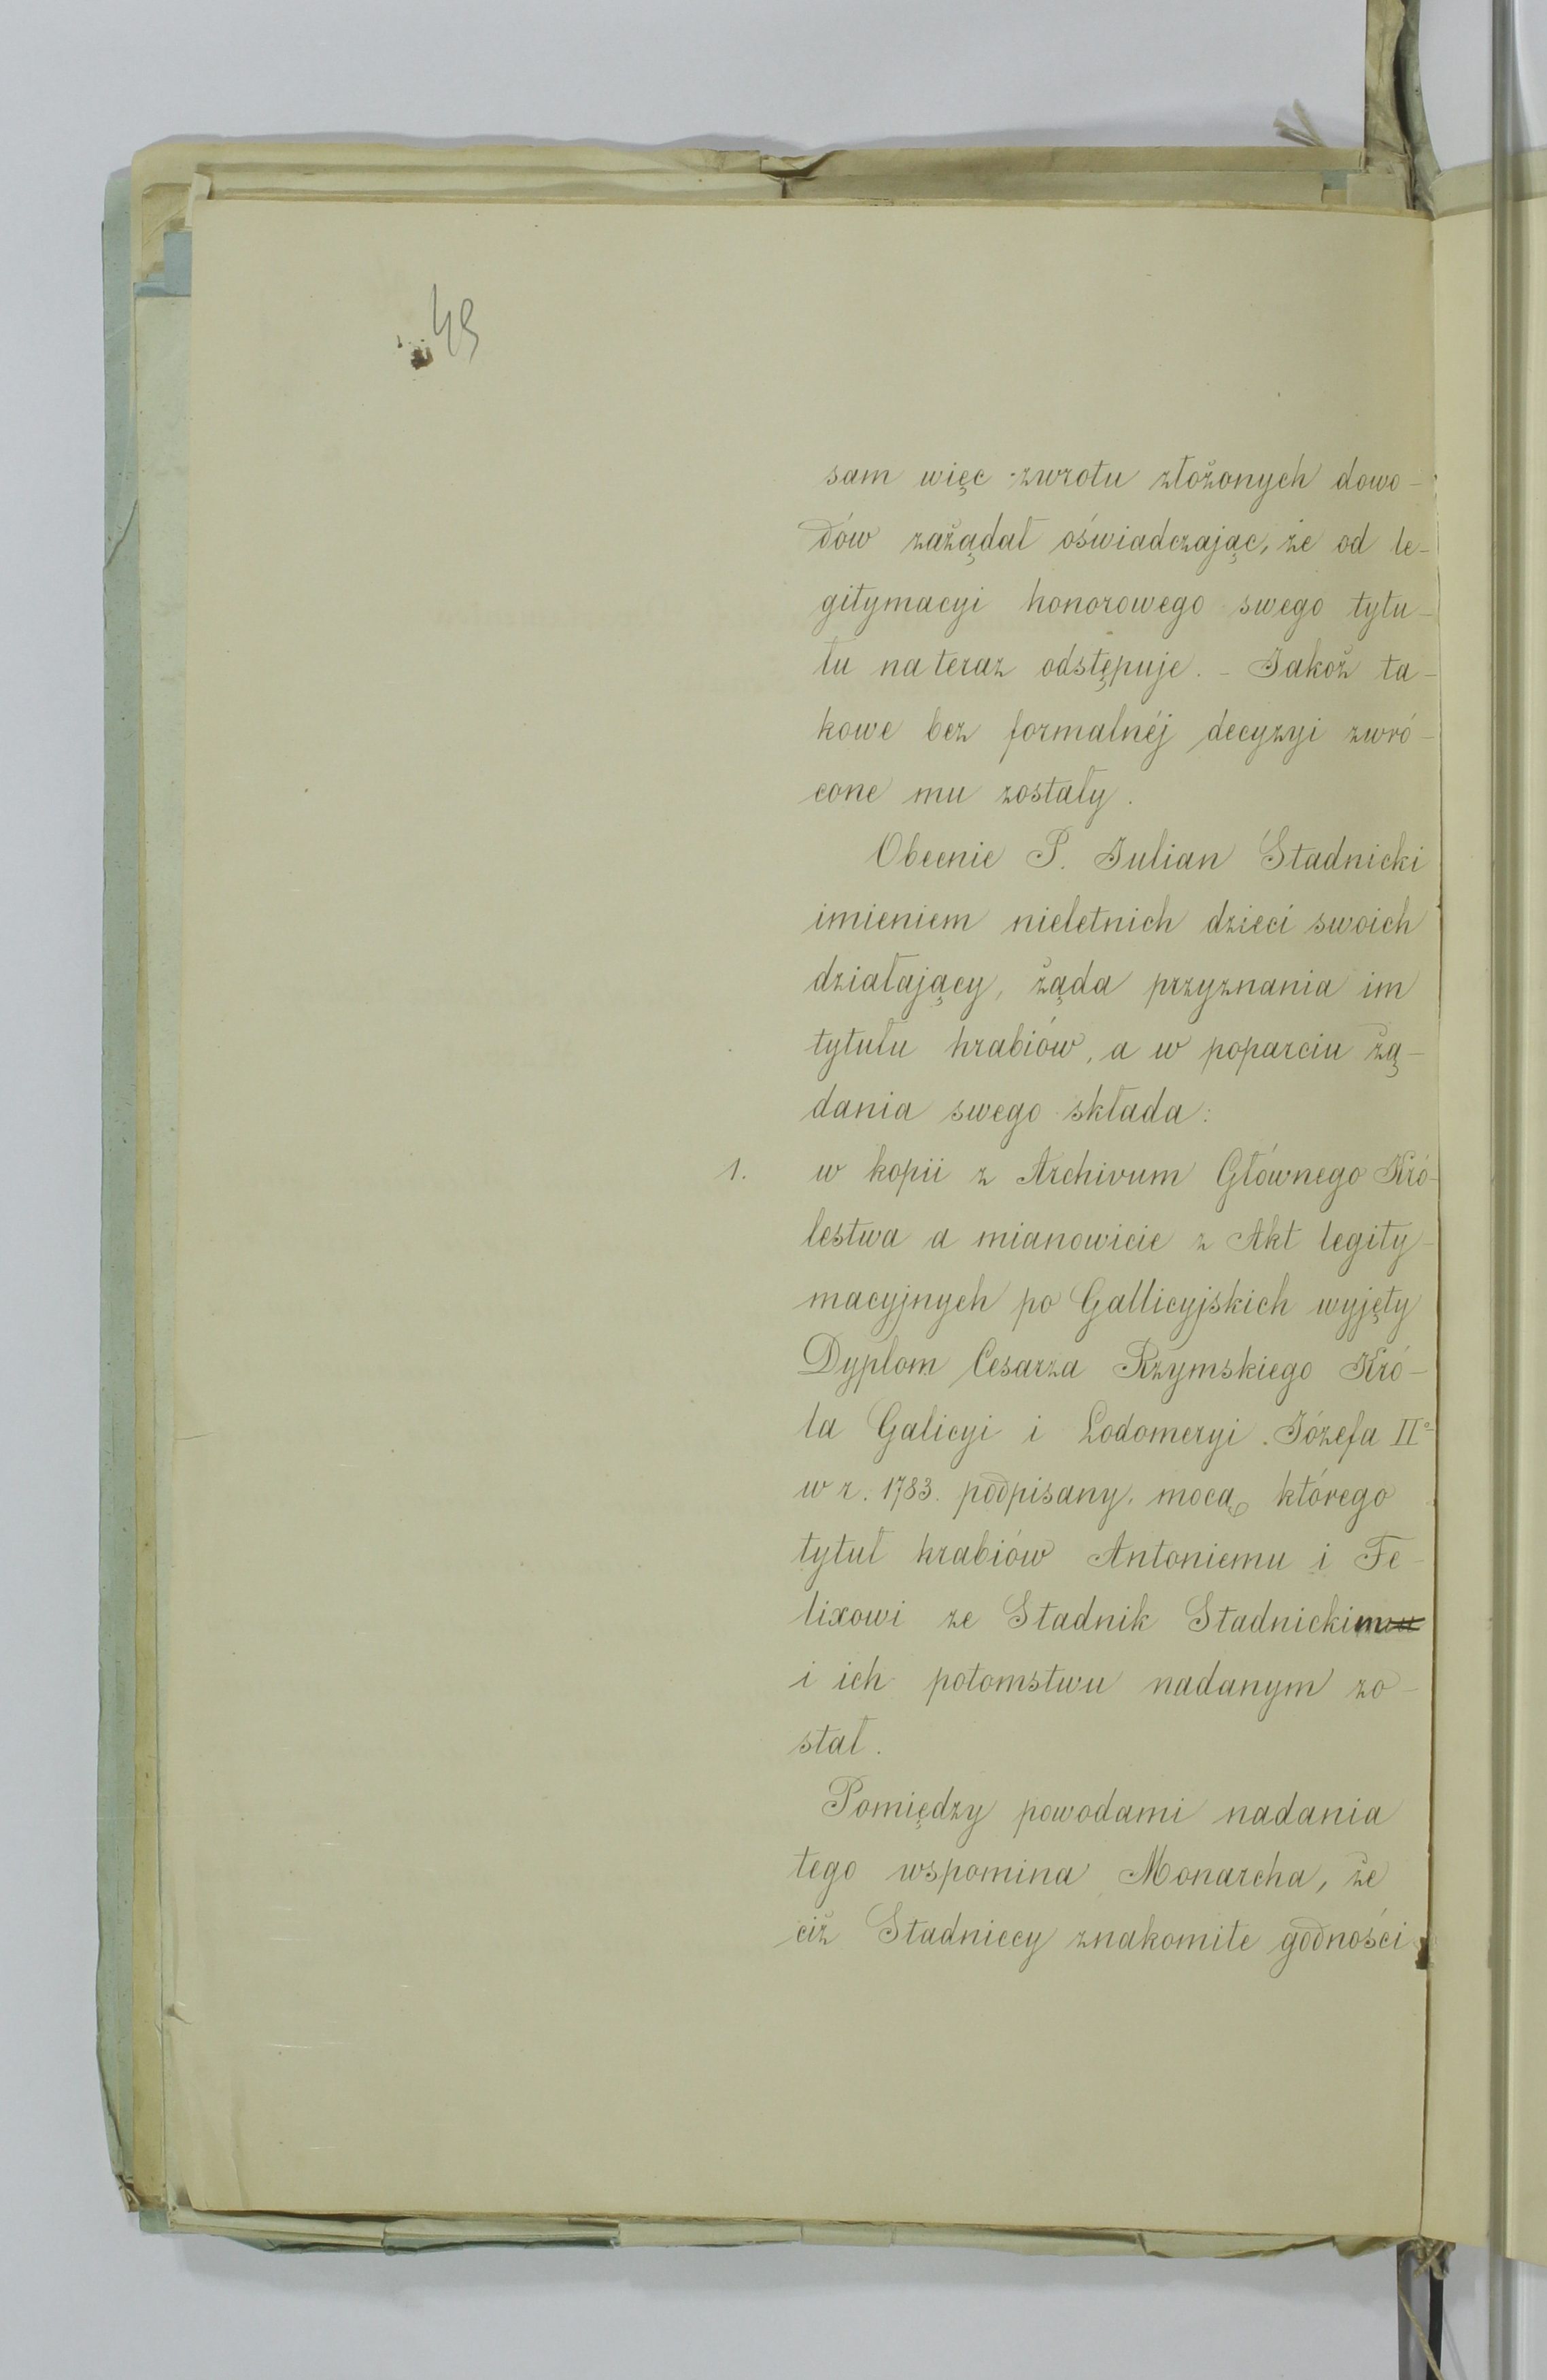 49
sam więc zwrotu złożonych dowo-
dów zażądał oświadczając, że od le-
gitymacyi honorowego swego tytu-
łu na teraz odstępuje. - Jakoż ta-
kowe bez formalnéj decyzyi zwró-
cone mu zostały.
Obecnie P. Julian Stadnicki
imieniem nieletnich dzieci swoich
działający, żąda przyznania im
tytułu hrabiów, a w poparciu żą-
dania swego składa:
1. w kopii z Archivum Głównego Kró-
lestwa a mianowicie z Akt legity-
macyjnych po Gallicyjskich wyjęty
Dyplom Cesarza Rzymskiego Kró-
la Galicyi i Lodomeryi Józefa IIº
w r. 1783. podpisany, mocą którego
tytuł hrabiów Antoniemu i Fe-
lixowi ze Stadnik Stadnickim
i ich potomstwu nadanym zo-
stał.
Pomiędzy powodami nadania
tego wspomina Monarcha, że
ciż Stadniccy znakomite godności